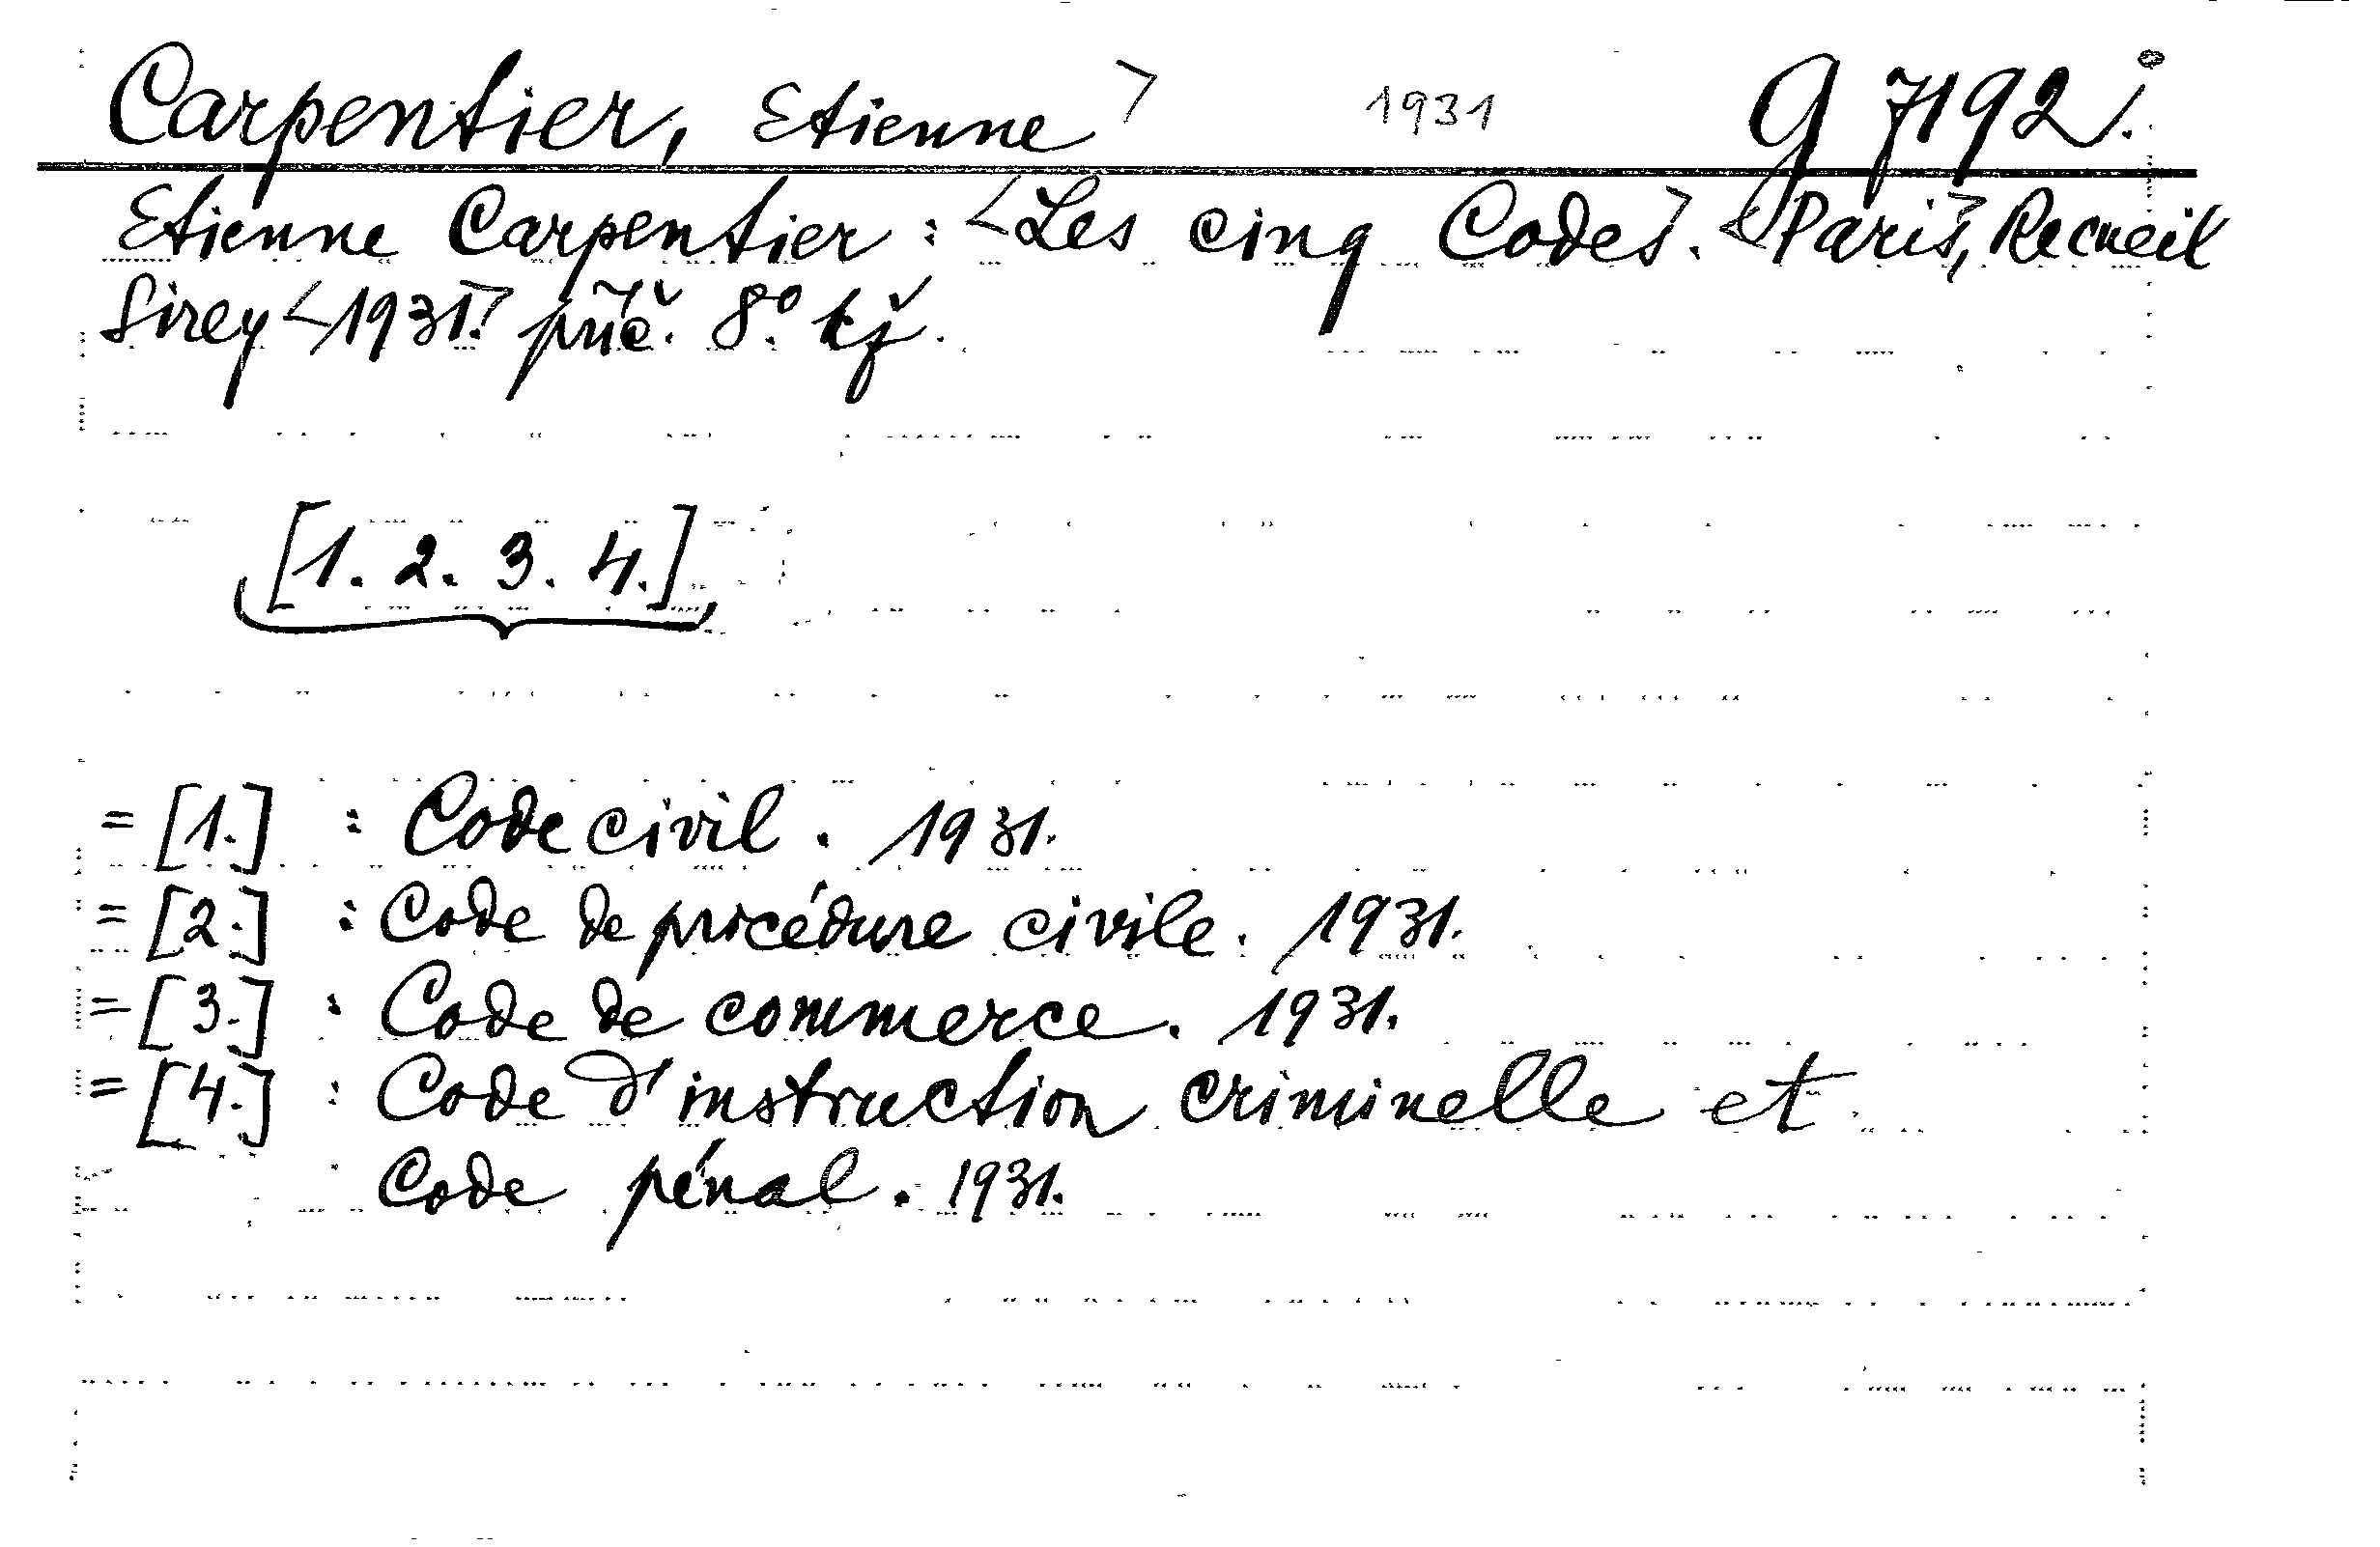 Carpentier, Etienne> 1931 g 7192.
Etienne Carpentier: <Les cinq Codes>. <Paris>, Recueil
Sirey <1931.> příč. 8° kř.
[1. 2. 3. 4.]
= [1.] : Code civil. 1931.
= [2.] : Code de procédure civile. 1931.
= [3.] : Code de commerce. 1931.
= [4.] : Code d'instruction criminelle et
Code pénal. 1931.